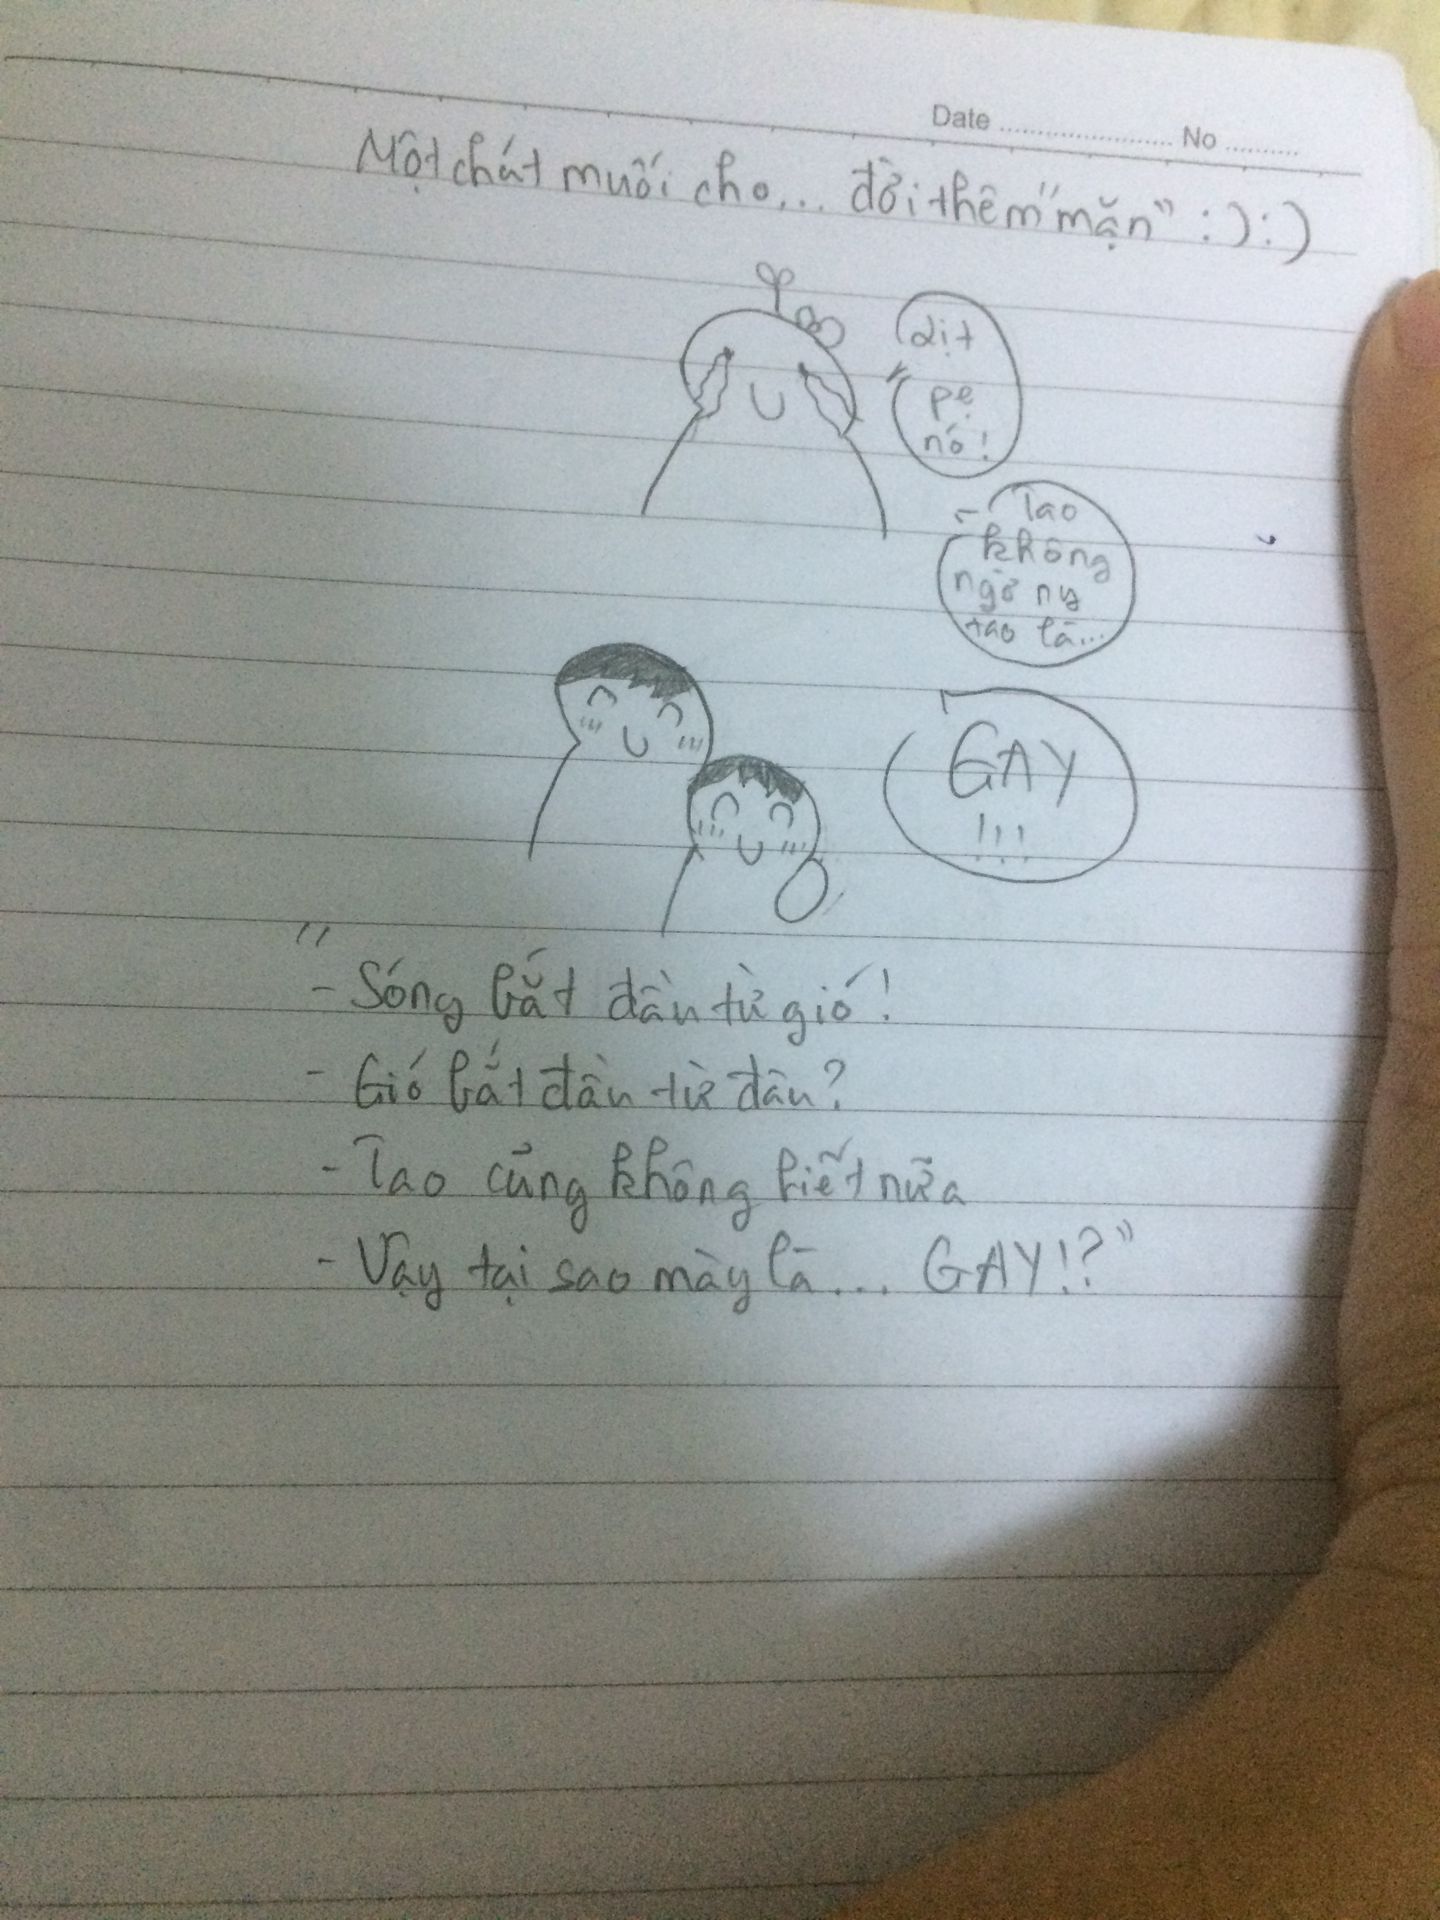 Date ........................ No ..........
Một chát muối cho... đời thêm "mặn" :) :)
dịt
pẹ
nó!
Tao
không
ngờ ny
tao là...
GAY
!!!
"
- Sóng bắt đầu từ gió!
- Gió bắt đầu từ đâu?
- Tao cũng không biết nữa
- Vậy tại sao mày là... GAY!?"